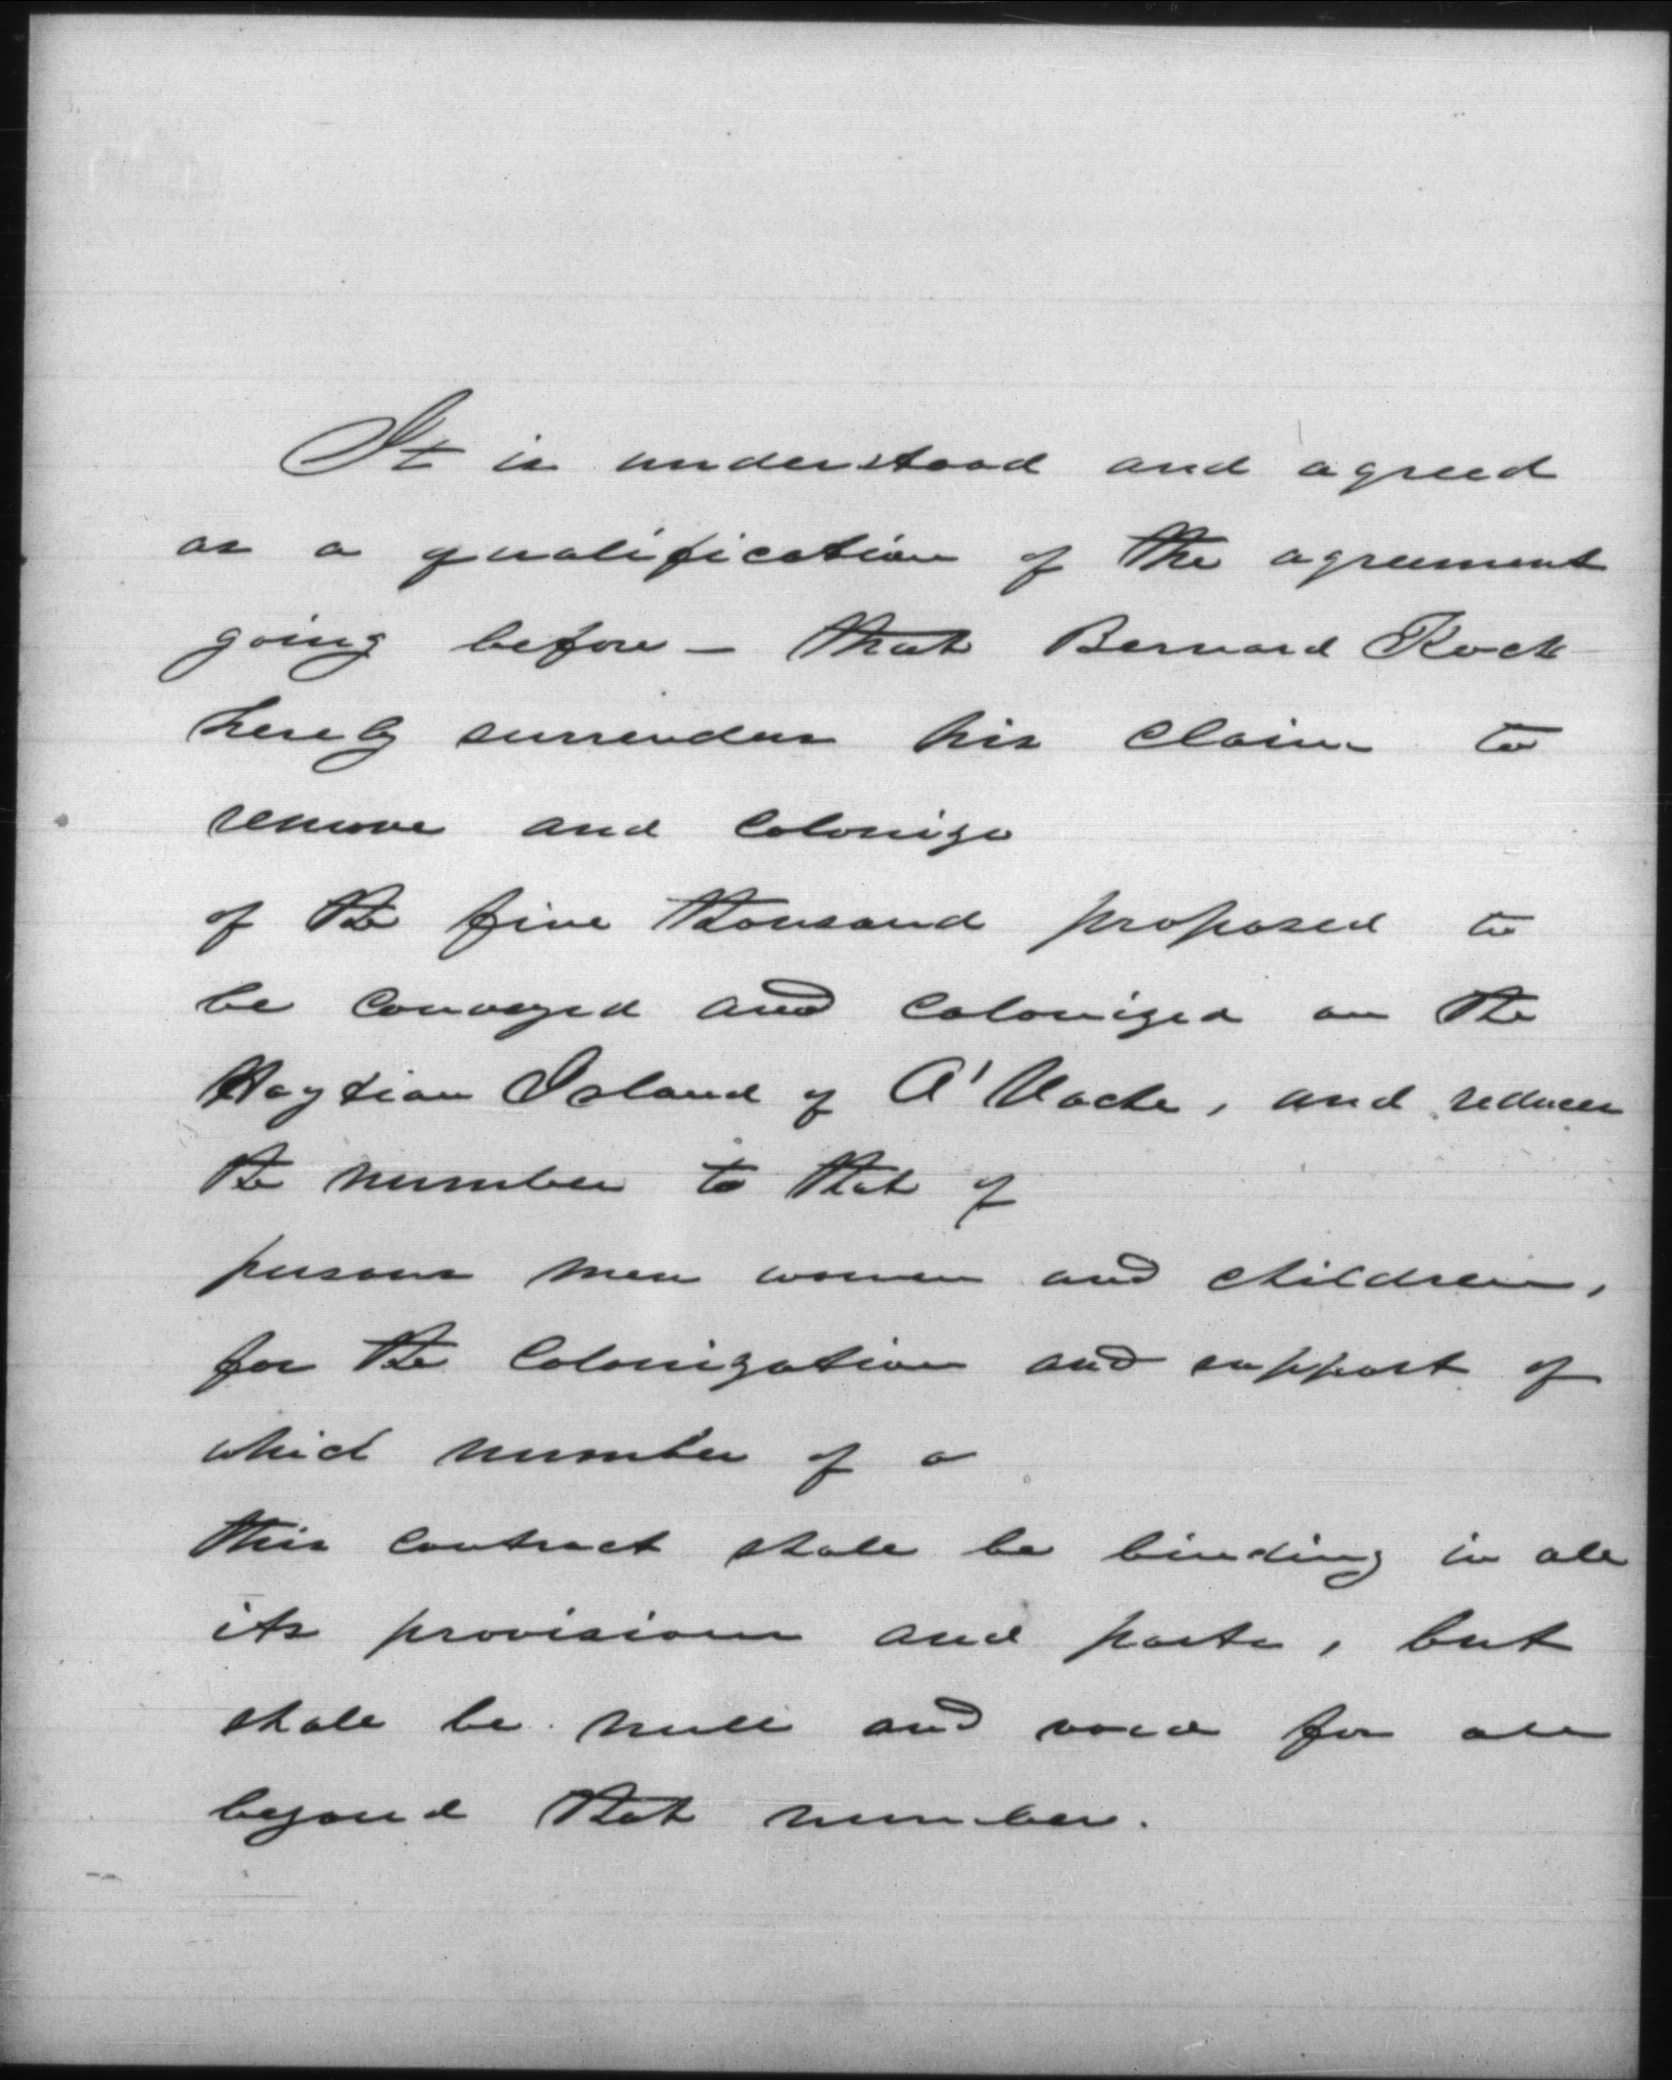 It is understood and agreed
as a qualification of the agreement
going before — that Bernard Kock
hereby surrenders his claim to
remove and colonize
of the five thousand proposed to
be conveyed and colonized on the
Haytian Island of A'Vache, and reduces
the number to that of
persons men women and children,
for the colonization and support of
which number of a
this contract shall be binding in all
its provisions and parts, but
shall be null and void for all
beyond that number.